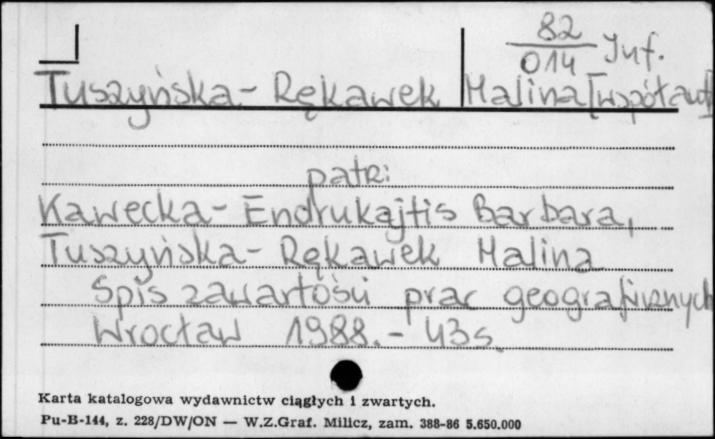 82
014 Inf.
Tuszyńska-Rękawek Malina [współaut]
patrz:
Kawecka-Endrukajtis Barbara,
Tuszyńska-Rękawek Malina
Spis zawartości prac geograficznych
Wrocław 1988.- 43s.
Karta katalogowa wydawnictw ciągłych i zwartych.
Pu-B-144, z. 228/DW/ON — W.Z.Graf. Milicz, zam. 388-86 5.650.000